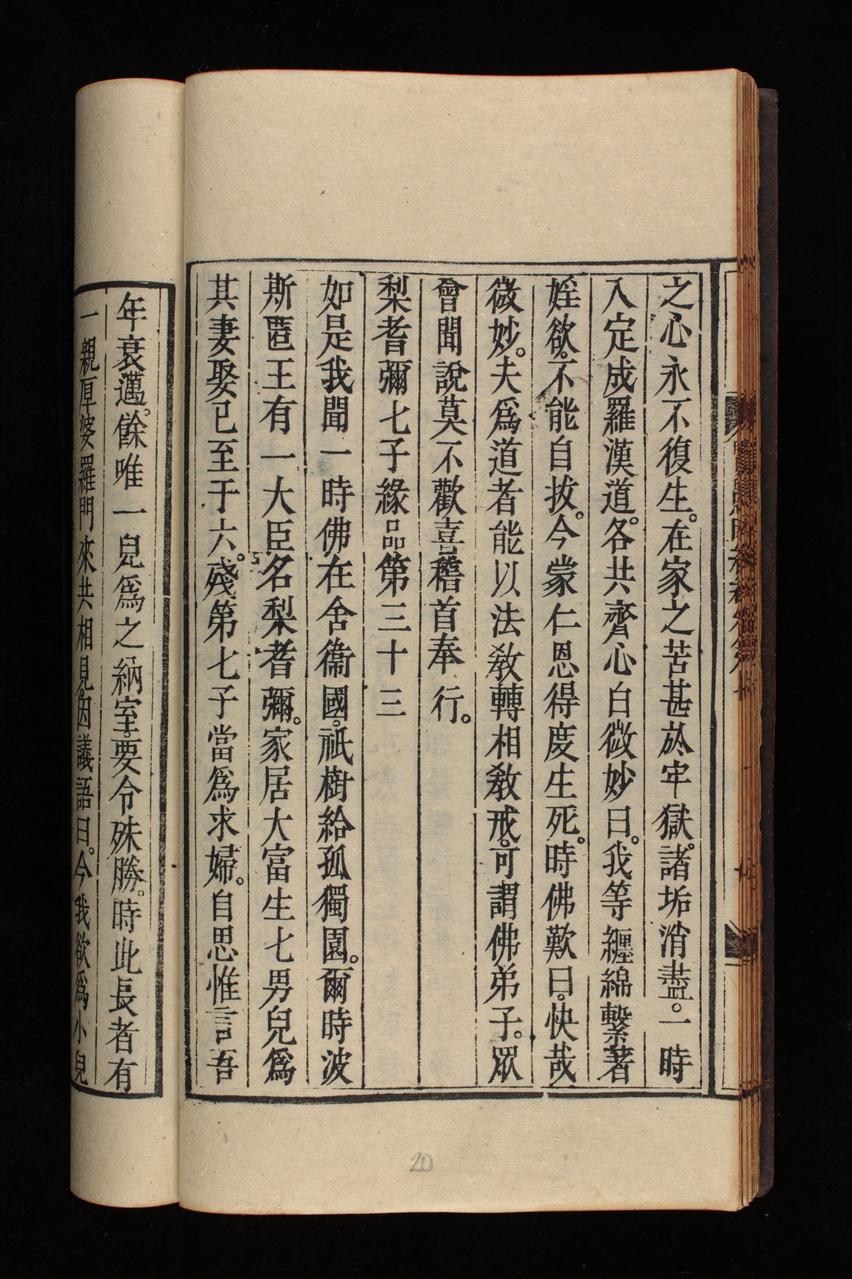 之心永不復生。在家之苦甚於牢獄。諸垢消盡。一時
入定成羅漢道。各共齊心白微妙曰。我等纏綿繫著
婬欲。不能自拔。今蒙仁恩得度生死。時佛歎曰。快哉
微妙。夫爲道者能以法教轉相教戒。可謂佛弟子。眾
會聞說莫不歡喜稽首奉行。
梨耆彌七子緣品第三十三
如是我聞一時佛在舍衞國。祇樹給孤獨園。爾時波
斯匿王有一大臣名梨耆彌。家居大富生七男兒爲
其妻娶已至于六。殘第七子當爲求婦。自思惟言吾
年衰邁。餘唯一兒爲之納室要令殊勝。時此長者有
一親厚婆羅門來共相見因議語曰。今我欲爲小兒
20